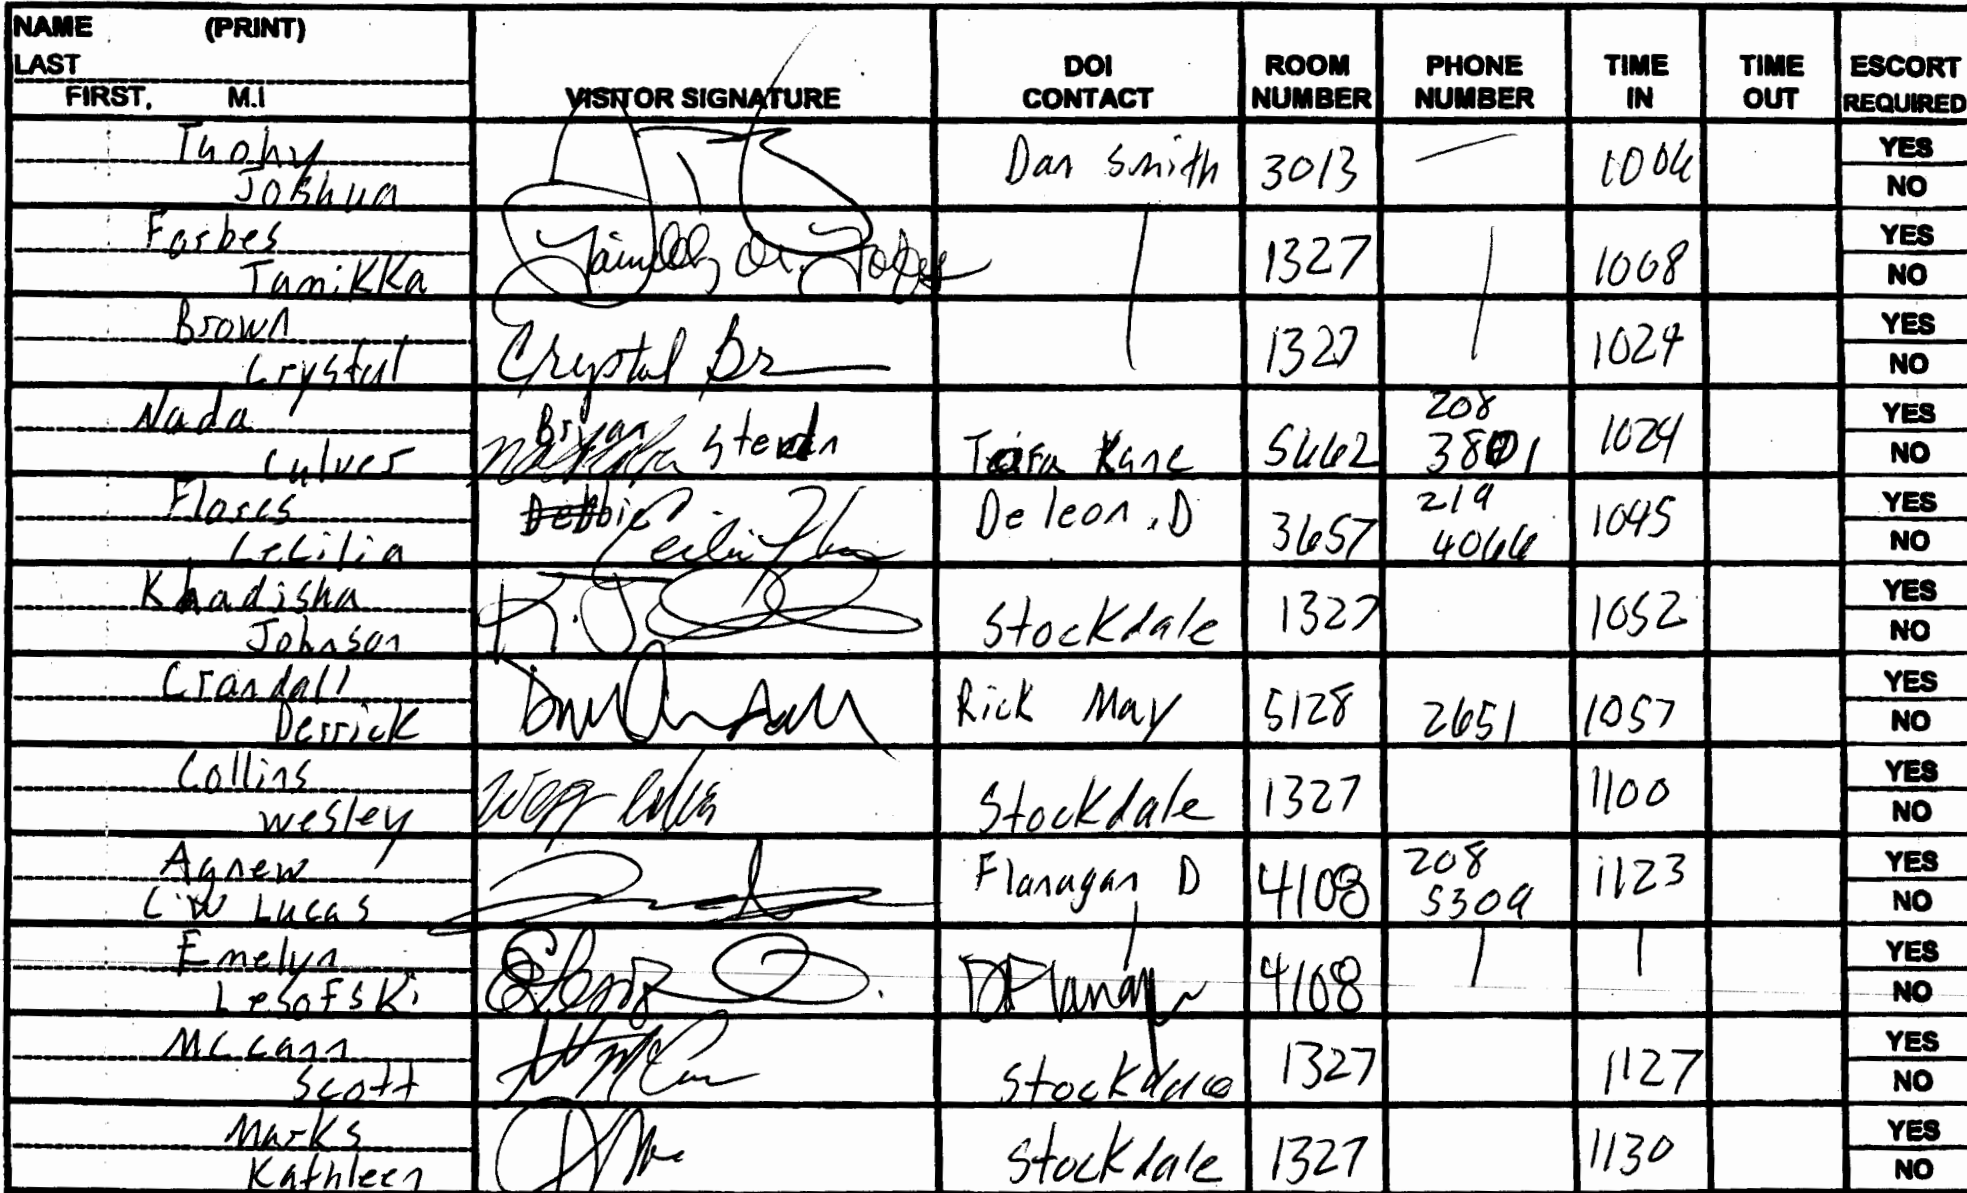 NAME (PRINT)
LAST
FIRST, M.I
VISITOR SIGNATURE
DOI CONTACT
ROOM NUMBER
PHONE NUMBER
TIME IN
TIME OUT
ESCORT REQUIRED
Tuohy Joshua Dan Smith 3013 — 1006 YES NO
Forbes Tamikka 1327 1008 YES NO
Brown Crystal Crystal Br 1327 1024 YES NO
Nada Culver Bryan Steven Kane 5662 208 3801 1024 YES NO
Flores Cecilia Debbie Deleon, D 3657 219 4066 1045 YES NO
Khadisha Johnson K. J Stockdale 1327 1052 YES NO
Crandall Derrick Rick May 5128 2651 1057 YES NO
Collins Wesley Stockdale 1327 1100 YES NO
Agnew Lucas Flanagan D 4108 208 5309 1123 YES NO
Emelyn Lesofski 4108 YES NO
McCann Scott Stockdale 1327 1127 YES NO
Marks Kathleen Stockdale 1327 1130 YES NO